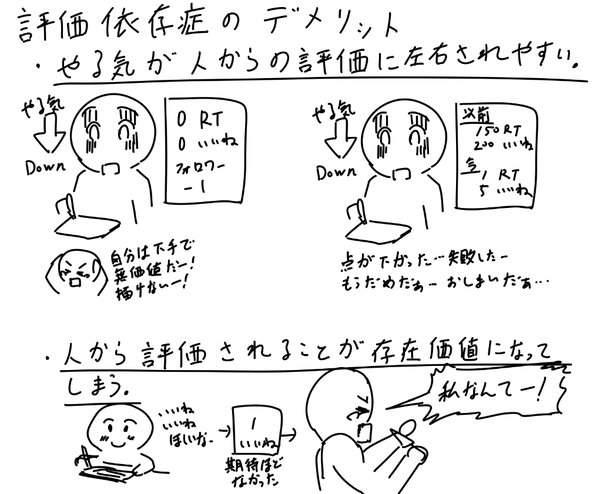 評価依存症のデメリット
・やる気が人からの評価に左右されやすい。
やる気
Down
0 RT
0 いいね
フォロワー
-1
自分は下手で
無価値だー!
描けないー!
やる気
Down
以前
150RT
200 いいね
今
1 RT
5 いいね
点が下がった…失敗したー
もうだめだぁー おしまいだぁ…
・人から評価されることが存在価値になって
しまう。
いいね
いいね
ほしいなー
1
いいね
期待ほど
なかった
私なんてー!